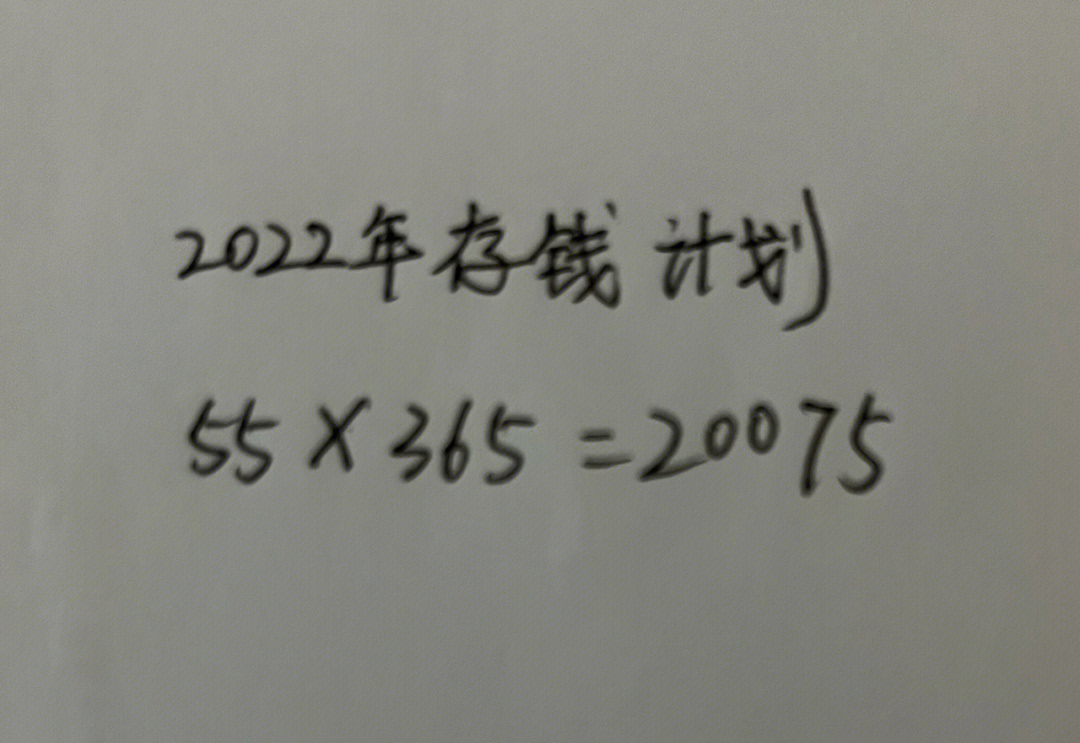 2022年存钱计划
55×365=20075